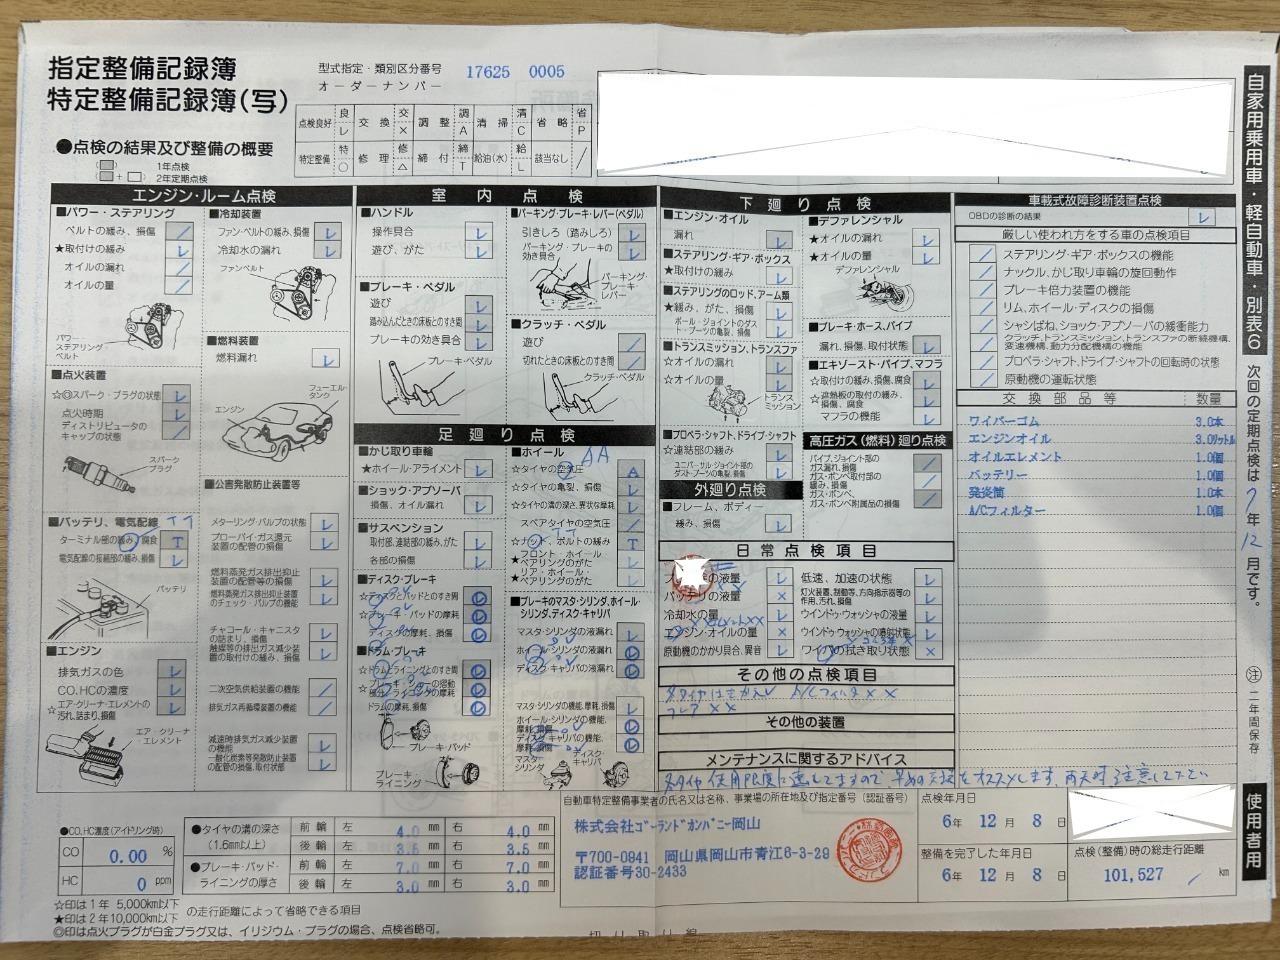 指定整備記録簿
特定整備記録簿(写)
型式指定・類別区分番号 17625 0005
オーダーナンバー
点検良好 良 レ 交換 交 × 調整 調 A 清掃 清 C 省略 省 P
特定整備 特 ○ 修理 修 △ 締付 締 T 給油(水) 給 L 該当なし /
●点検の結果及び整備の概要
1年点検
+ 2年定期点検
エンジン・ルーム点検
■パワー・ステアリング
ベルトの緩み、損傷 /
★取付けの緩み レ
オイルの漏れ /
オイルの量 /
パワー・ステアリング・ベルト
■点火装置
☆◎スパーク・プラグの状態 レ
点火時期 レ
ディストリビュータのキャップの状態 /
スパークプラグ
■バッテリ、電気配線 T T
ターミナル部の緩み、腐食 T
電気配線の接続部の緩み、損傷 レ
バッテリ
■エンジン
排気ガスの色 レ
CO、HCの濃度 レ
☆エア・クリーナ・エレメントの汚れ、詰まり、損傷 レ
エア・クリーナ・エレメント
■冷却装置
ファン・ベルトの緩み、損傷 レ
冷却水の漏れ レ
ファンベルト
■燃料装置
燃料漏れ レ
フューエル・タンク
エンジン
■公害発散防止装置等
メターリング・バルブの状態 レ
ブローバイ・ガス還元装置の配管の損傷 レ
燃料蒸発ガス排出抑止装置の配管等の損傷 レ
燃料蒸発ガス排出抑止装置のチェック・バルブの機能 レ
チャコール・キャニスタの詰まり、損傷 レ
触媒等の排出ガス減少装置の取付けの緩み、損傷 レ
二次空気供給装置の機能 /
排気ガス再循環装置の機能 /
減速時排気ガス減少装置の機能 レ
一酸化炭素等発散防止装置の配管の損傷、取付状態 レ
室内点検
■ハンドル
操作具合 レ
遊び、がた レ
■ブレーキ・ペダル
遊び レ
踏み込んだときの床板とのすき間 レ
ブレーキの効き具合 レ
ブレーキ・ペダル
■パーキング・ブレーキ・レバー(ペダル)
引きしろ(踏みしろ) レ
パーキング・ブレーキの効き具合 レ
パーキング・ブレーキ・レバー
■クラッチ・ペダル
遊び /
切れたときの床板とのすき間 /
クラッチ・ペダル
足廻り点検
■かじ取り車輪
★ホイール・アライメント レ
■ショック・アブソーバ
損傷、オイル漏れ レ
■サスペンション
取付部、連結部の緩み、がた レ
各部の損傷 レ
■ディスク・ブレーキ
☆ディスクとパッドとのすき間
☆ブレーキ・パッドの摩耗
ディスクの摩耗、損傷
■ドラム・ブレーキ
☆ドラムとライニングとのすき間
☆ブレーキ・シューの摺動部分、ライニングの摩耗
ドラムの摩耗、損傷
ブレーキ・パッド
ブレーキ・ライニング
■ホイール AA
☆タイヤの空気圧 A
☆タイヤの亀裂、損傷 レ
☆タイヤの溝の深さ、異状な摩耗 レ
スペアタイヤの空気圧 /
☆ナット、ボルトの緩み T
★フロント・ホイール・ベアリングのがた レ
★リア・ホイール・ベアリングのがた レ
■ブレーキのマスタ・シリンダ、ホイール・シリンダ、ディスク・キャリパ
マスタ・シリンダの液漏れ レ
ホイール・シリンダの液漏れ
ディスク・キャリパの液漏れ
マスタ・シリンダの機能、摩耗、損傷 レ
ホイール・シリンダの機能、摩耗、損傷
ディスク・キャリパの機能、摩耗、損傷
マスタ・シリンダ
ディスク・キャリパ
下廻り点検
■エンジン・オイル
漏れ レ
■ステアリング・ギア・ボックス
★取付けの緩み レ
■ステアリングのロッド、アーム類
★緩み、がた、損傷 レ
ボール・ジョイントのダスト・ブーツの亀裂、損傷 レ
■トランスミッション、トランスファ
☆オイルの漏れ レ
☆オイルの量 レ
トランスミッション
■プロペラ・シャフト、ドライブ・シャフト
☆連結部の緩み レ
ユニバーサル・ジョイント部のダスト・ブーツの亀裂、損傷 レ
外廻り点検
■フレーム、ボディー
緩み、損傷 レ
■デファレンシャル
★オイルの漏れ レ
★オイルの量 レ
デファレンシャル
■ブレーキ・ホース、パイプ
漏れ、損傷、取付状態 レ
■エキゾースト・パイプ、マフラ
☆取付けの緩み、損傷、腐食 レ
☆遮熱板の取付の緩み、損傷、腐食 レ
マフラの機能 レ
高圧ガス(燃料)廻り点検
パイプ、ジョイント部のガス漏れ、損傷 /
ガス・ボンベ取付部の緩み、損傷 /
ガス・ボンベ、ガス・ボンベ附属品の損傷 /
日常点検項目
の液量 レ
バッテリの液量 ×
冷却水の量 レ
エンジン・オイルの量 ×
原動機のかかり具合、異音 レ
低速、加速の状態 レ
灯火装置、制動等、方向指示器等の作用、汚れ、損傷 レ
ウインドゥ・ウォッシャの液量 レ
ウインドゥ・ウォッシャの噴射状態 レ
ワイパの拭き取り状態 ×
その他の点検項目
A/Cフィルタ ××
フレア ××
その他の装置
メンテナンスに関するアドバイス
タイヤ使用限度に達してますので、早めの交換をオススメします。雨天時注意してください
車載式故障診断装置点検
OBDの診断の結果 レ
厳しい使われ方をする車の点検項目
/ ステアリング・ギア・ボックスの機能
/ ナックル、かじ取り車輪の旋回動作
/ ブレーキ倍力装置の機能
/ リム、ホイール・ディスクの損傷
/ シャシばね、ショック・アブソーバの緩衝能力
/ クラッチ、トランスミッション、トランスファの断続機構、変速機構、動力分配機構の機能
/ プロペラ・シャフト、ドライブ・シャフトの回転時の状態
/ 原動機の運転状態
交換部品等 数量
ワイパーゴム 3.0本
エンジンオイル 3.0リットル
オイルエレメント 1.0個
バッテリー 1.0個
発炎筒 1.0本
A/Cフィルター 1.0個
自家用乗用車・軽自動車・別表6
次回の定期点検は7年12月です。
㊟二年間保存
使用者用
●CO、HC濃度(アイドリング時)
CO 0.00 %
HC 0 ppm
●タイヤの溝の深さ(1.6mm以上) 前輪 左 4.0 mm 右 4.0 mm
後輪 左 3.5 mm 右 3.5 mm
●ブレーキ・パッド・ライニングの厚さ 前輪 左 7.0 mm 右 7.0 mm
後輪 左 3.0 mm 右 3.0 mm
☆印は1年 5,000km以下
★印は2年10,000km以下 の走行距離によって省略できる項目
◎印は点火プラグが白金プラグ又は、イリジウム・プラグの場合、点検省略可。
自動車特定整備事業者の氏名又は名称、事業場の所在地及び指定番号(認証番号)
株式会社ゴーランドカンパニー岡山
〒700-0941 岡山県岡山市青江6-3-29
認証番号30-2433
点検年月日
6年 12月 8日
整備を完了した年月日
6年 12月 8日
点検(整備)時の総走行距離
101,527 km
切り取り線